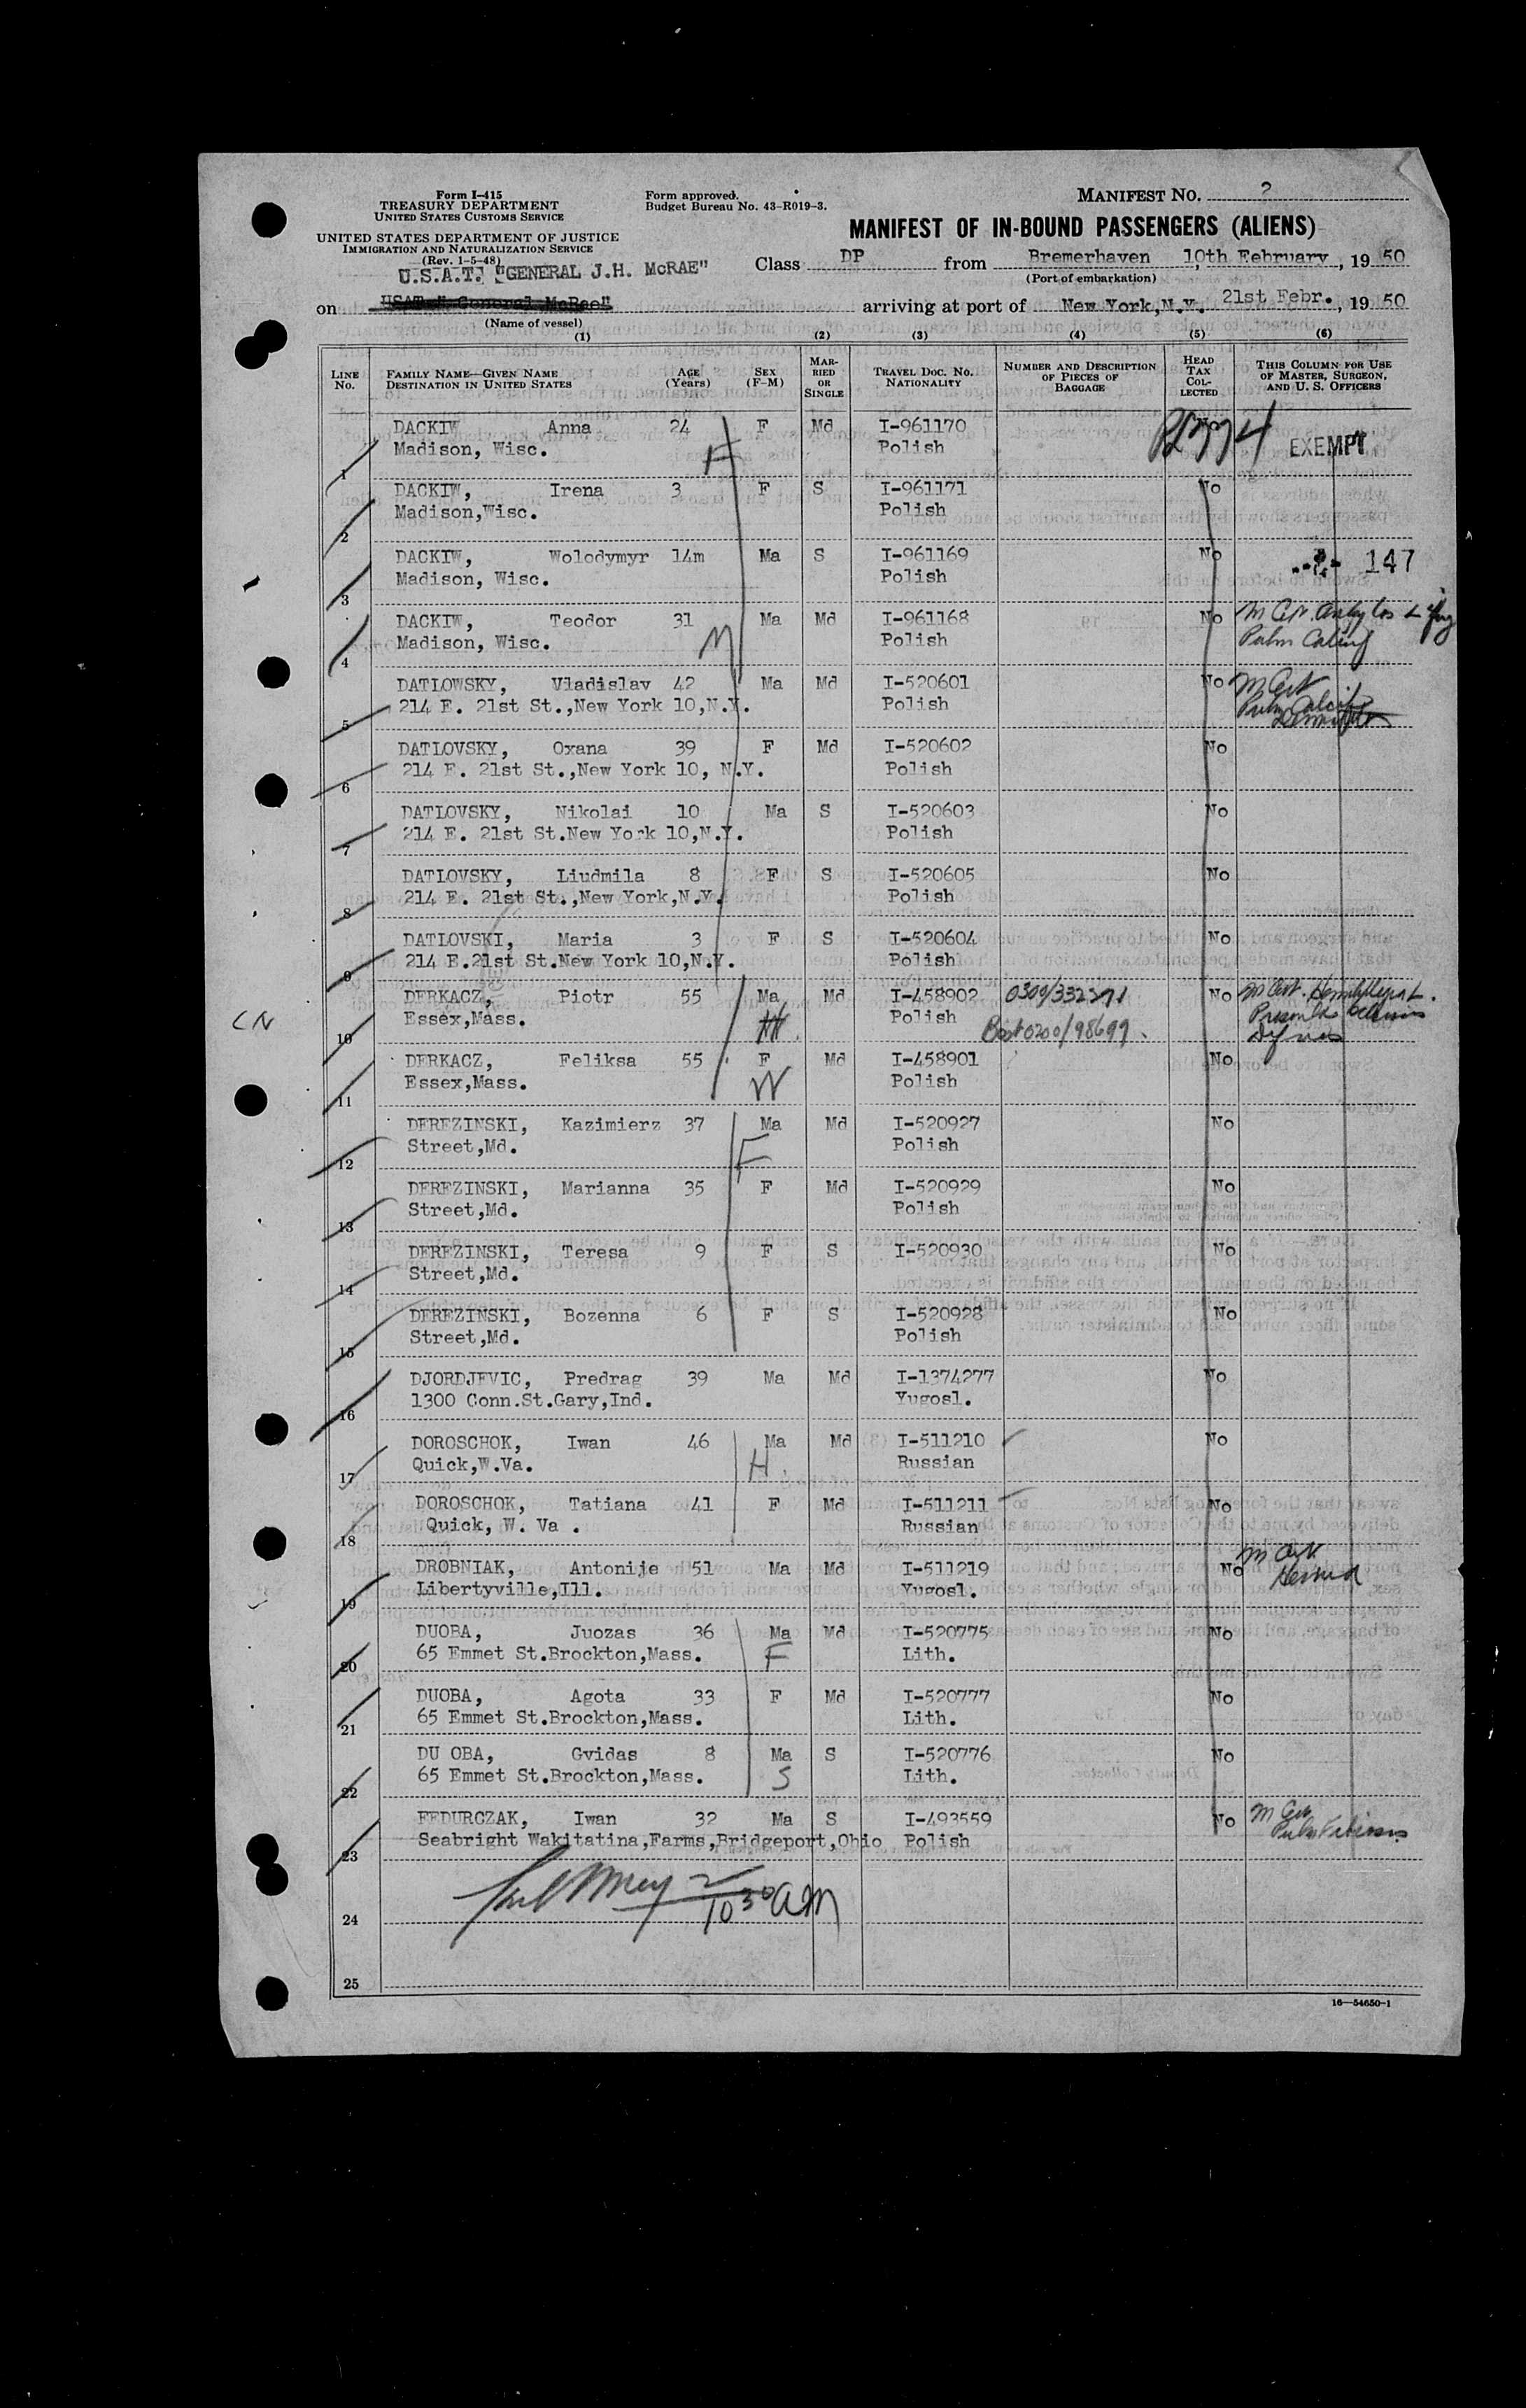 Form I-415
TREASURY DEPARTMENT
UNITED STATES CUSTOMS SERVICE
UNITED STATES DEPARTMENT OF JUSTICE
IMMIGRATION AND NATURALIZATION SERVICE
(Rev. 1-5-48)
Form approved.
Budget Bureau No. 43-R019-3.
MANIFEST NO. 2
MANIFEST OF IN-BOUND PASSENGERS (ALIENS)
U.S.A.T. "GENERAL J.H. McRAE"
Class DP from Bremerhaven 10th February, 19 50
(Port of embarkation)
on USAT " General McRae" arriving at port of New York, N.Y. 21st Febr., 19 50
(Name of vessel)
(1) (2) (3) (4) (5) (6)
LINE No. FAMILY NAME—GIVEN NAME DESTINATION IN UNITED STATES AGE (Years) SEX (F-M) MARRIED OR SINGLE TRAVEL DOC. NO. NATIONALITY NUMBER AND DESCRIPTION OF PIECES OF BAGGAGE HEAD TAX COLLECTED THIS COLUMN FOR USE OF MASTER, SURGEON, AND U. S. OFFICERS
DACKIW Anna 24 F Md I-961170 EXEMPT
1 Madison, Wisc. Polish
DACKIW, Irena 3 F S I-961171 No
2 Madison,Wisc. Polish
DACKIW, Wolodymyr 14m Ma S I-961169 No 147
3 Madison, Wisc. Polish
DACKIW, Teodor 31 Ma Md I-961168 No
4 Madison, Wisc. M Polish
DATLOWSKY, Wladislav 42 Ma Md I-520601 No M Cert
5 214 E. 21st St.,New York 10,N.Y. Polish
DATLOVSKY, Oxana 39 F Md I-520602 No
6 214 E. 21st St.,New York 10, N.Y. Polish
DATLOVSKY, Nikolai 10 Ma S I-520603 No
7 214 E. 21st St.New York 10,N.Y. Polish
DATLOVSKY, Liudmila 8 F S I-520605 No
8 214 E. 21st St.,New York,N.Y. Polish
DATLOVSKI, Maria 3 F S I-520604 No
9 214 E.21st St.New York 10,N.Y. Polish
DERKACZ, Piotr 55 Ma Md I-458902 0309/332371 No
CN 10 Essex,Mass. Polish 0200/98699
DERKACZ, Feliksa 55 F Md I-458901 No
11 Essex,Mass. W Polish
DEREZINSKI, Kazimierz 37 Ma Md I-520927 No
12 Street,Md. F Polish
DEREZINSKI, Marianna 35 F Md I-520929 No
13 Street,Md. Polish
DEREZINSKI, Teresa 9 F S I-520930 No
14 Street,Md.
DEREZINSKI, Bozenna 6 F S I-520928 No
15 Street,Md. Polish
DJORDJEVIC, Predrag 39 Ma Md I-1374277 No
16 1300 Conn.St.Gary,Ind. Yugosl.
DOROSCHOK, Iwan 46 Ma Md I-511210 No
17 Quick,W.Va. H Russian
DOROSCHOK, Tatiana 41 F Md I-511211 No
18 Quick, W. Va . Russian
DROBNIAK, Antonije 51 Ma Md I-511219 No M Cert
19 Libertyville,Ill. Yugosl. Hernia
DUOBA, Juozas 36 Ma Md I-520775 No
20 65 Emmet St.Brockton,Mass. F Lith.
DUOBA, Agota 33 F Md I-520777 No
21 65 Emmet St.Brockton,Mass. Lith.
DU OBA, Gvidas 8 Ma S I-520776 No
22 65 Emmet St.Brockton,Mass. S Lith.
FEDURCZAK, Iwan 32 Ma S I-493559 No
23 Seabright Wakitatina,Farms,Bridgeport,Ohio Polish
24 10 30 AM
25
16—54650-1